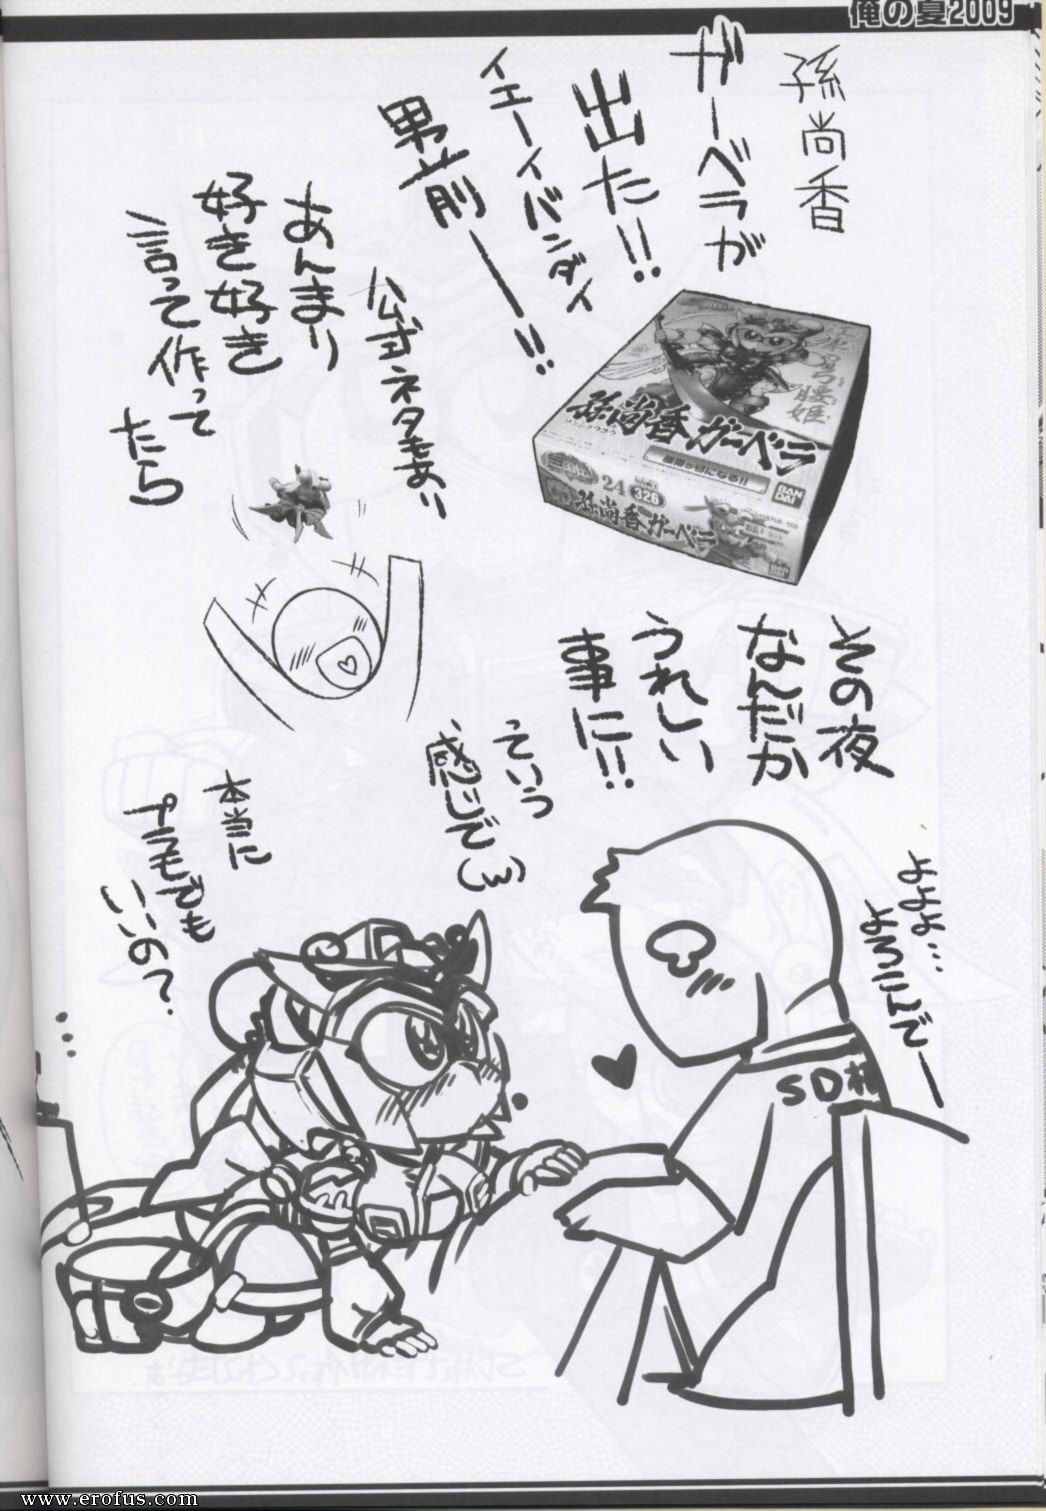 俺の夏2009
孫尚香
ガーベラが
出た!!
イエーイバンダイ
男前ー!!
公式ネタ通り
あんまり
好き好き
言って作って
たら
弓腰姫
孫尚香ガーベラ
ソンショウコウ
BAN
DAI
24
326
孫尚香ガーベラ
その夜
なんだか
うれしい
事に!!
ていう
感じで(ω)
本当に
プラモでも
いいの?
よよよ…
よろこんでー
SD
www.erofus.com